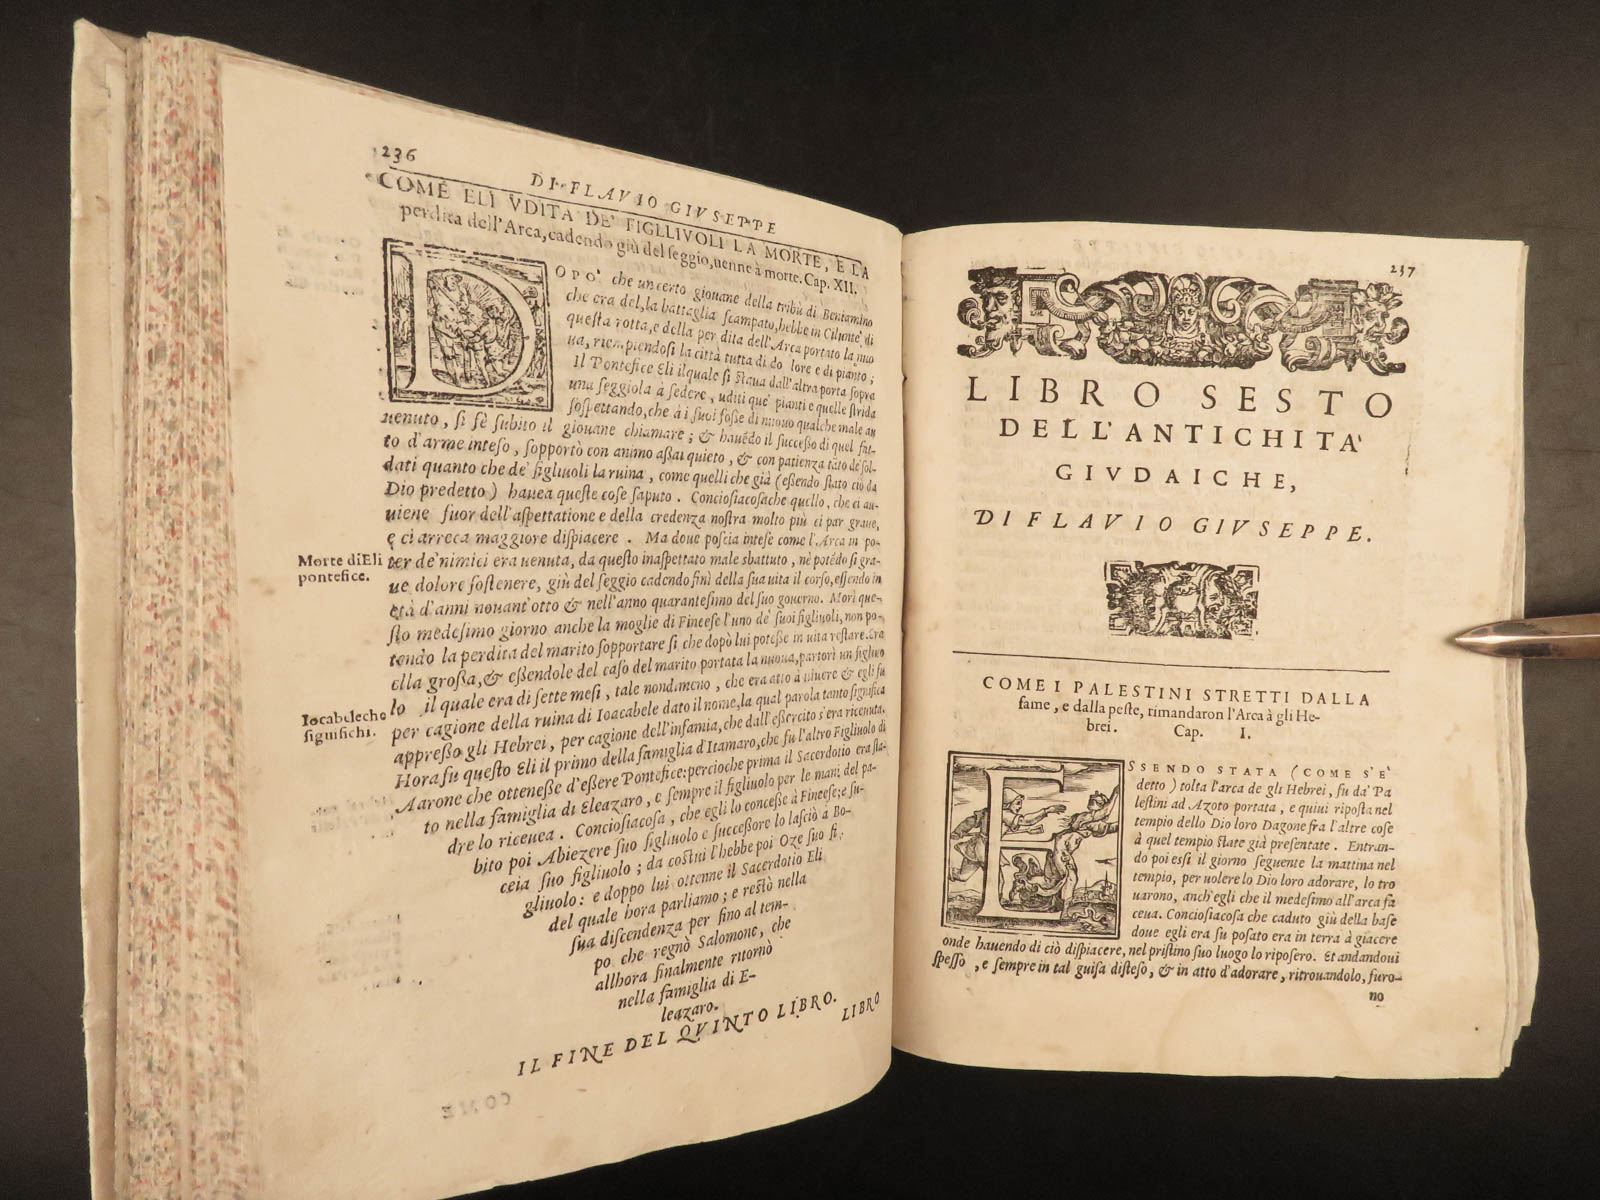 236
DI FLAVIO GIVSEPPE
COME ELI VDITA DE' FIGLLIVOLI LA MORTE, E LA
perdita dell'Arca, cadendo giù del seggio, uenne à morte. Cap. XII.
DOPO' che un certo giouane della tribù di Beniamino
che era del, la battaglia scampato, hebbe in Cilunte di
questa rotta, e della per dita dell'Arca portato la nuo
ua, riempiendosi la città tutta di do lore e di pianto;
Il Pontefice Eli il quale si staua dall'altra porta sopra
una seggiola à sedere, uditi que' pianti e quelle strida
sospettando, che à i suoi fosse di nuouo qualche male au
uenuto, si fè subito il giouane chiamare; & hauédo il successo di quel fat-
to d'arme inteso, sopportò con animo assai quieto, & con patienza tāto de' sol-
dati quanto che de' figliuoli la ruina, come quelli che già (essendo stato ciò da
Dio predetto) hauea queste cose saputo. Conciosiacosache quello, che ci au-
uiene fuor dell'aspettatione e della credenza nostra molto più ci par graue,
e ci arreca maggiore dispiacere. Ma doue poscia intese come l'Arca in po-
Morte di Eli
pontefice.
ter de' nimici era uenuta, da questo inaspettato male sbattuto, nè potédo si gra-
ue dolore sostenere, giù del seggio cadendo finì della sua uita il corso, essendo in
età d'anni nouant'otto & nell'anno quarantesimo del suo gouerno. Morì que-
sto medesimo giorno anche la moglie di Fineese l'uno de' suoi figliuoli, non po-
tendo la perdita del marito sopportare si che dopò lui potesse in uita restare. Era
ella grossa, & essendole del caso del marito portata la nuoua, partorì un figliuo
lo il quale era di sette mesi, tale nondimeno, che era atto à uiuere & egli fu
Iocabeleche
significhi.
per cagione della ruina di Ioacabele dato il nome, la qual parola tanto significa
appresso gli Hebrei, per cagione dell'infamia, che dall'essercito s'era riceuuta.
Hora fu questo Eli il primo della famiglia d'Itamaro, che fu l'altro Figliuolo di
Aarone che ottenesse d'essere Pontefice: percioche prima il Sacerdotio era sta-
to nella famiglia di Eleazaro, e sempre il figliuolo per le mani del pa-
dre lo riceuea. Conciosiacosa, che egli lo concesse à Fineese; e su-
bito poi Abiezere suo figliuolo e successore lo lasciò à Bo-
ceia suo figliuolo; da costui l'hebbe poi Oze suo fi-
gliuolo: e doppo lui ottenne il Sacerdotio Eli
del quale hora parliamo; e restò nella
sua discendenza per fino al tem-
po che regnò Salomone, che
allhora finalmente ritornò
nella famiglia di E-
leazaro.
IL FINE DEL QVINTO LIBRO.
LIBRO
237
LIBRO SESTO
DELL'ANTICHITA'
GIVDAICHE,
DI FLAVIO GIVSEPPE.
COME I PALESTINI STRETTI DALLA
fame, e dalla peste, rimandaron l'Arca à gli He-
brei. Cap. I.
ESSENDO STATA (COME S'E'
detto) tolta l'arca de gli Hebrei, fu da' Pa
lestini ad Azoto portata, e quiui riposta nel
tempio dello Dio loro Dagone fra l'altre cose
à quel tempio state già presentate. Entran-
do poi essi il giorno seguente la mattina nel
tempio, per uolere lo Dio loro adorare, lo tro
uarono, anch'egli che il medesimo all'arca fa
ceua. Conciosiacosa che caduto giù della base
doue egli era su posato era in terra à giacere
onde hauendo di ciò dispiacere, nel pristino suo luogo lo riposero. Et andandoui
spesso, e sempre in tal guisa disteso, & in atto d'adorare, ritrouandolo, furo-
no